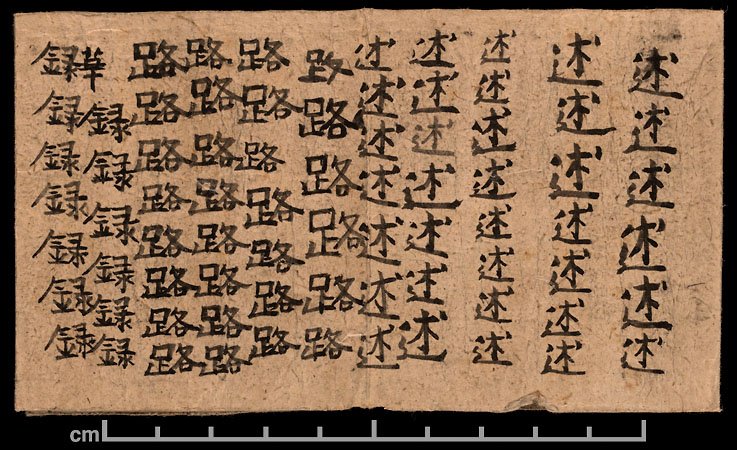 述述述述述述
述述述述述述述
述述述述述述述述
述述述述述述述
述述述述述述述
路路路路路
路路路路路路路
路路路路路路路路
路路路路路路路路
華録録録録録録
録録録録録録録
cm